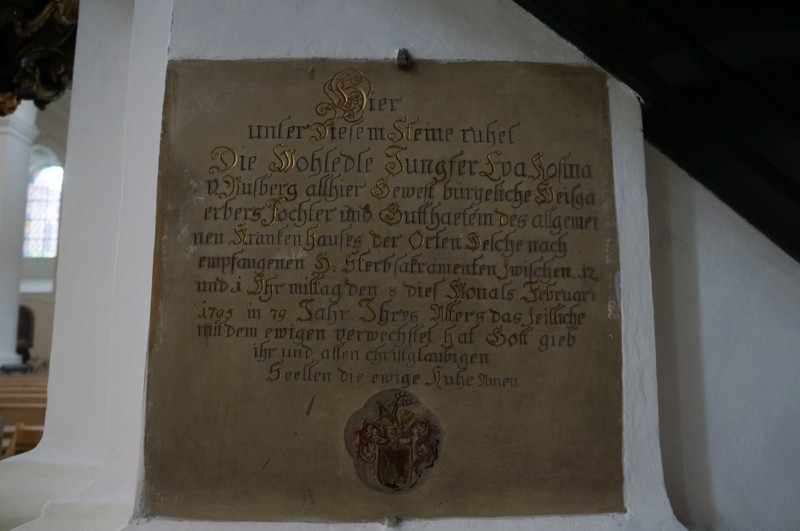 Hier
unter Diesem Steine ruhet
Die Wohledle Jungfer Eva Rosina
v. Rusberg allhier Gewest bürgeliche Weisgä
erbers Tochter und Gutthaetein des allgemei
nen Krankenhauses der Orten Welche nach
empfangenen H: Sterbsakramenten zwischen 12
und 1 Uhr mittag den 8 dies Monats Februari
1795 in 79 Jahr Ihres Alters das zeitliche
mit dem ewigen verwechstet hat Gott gieb
ihr und allen christglaubigen
Seellen die ewige Ruhe Amen